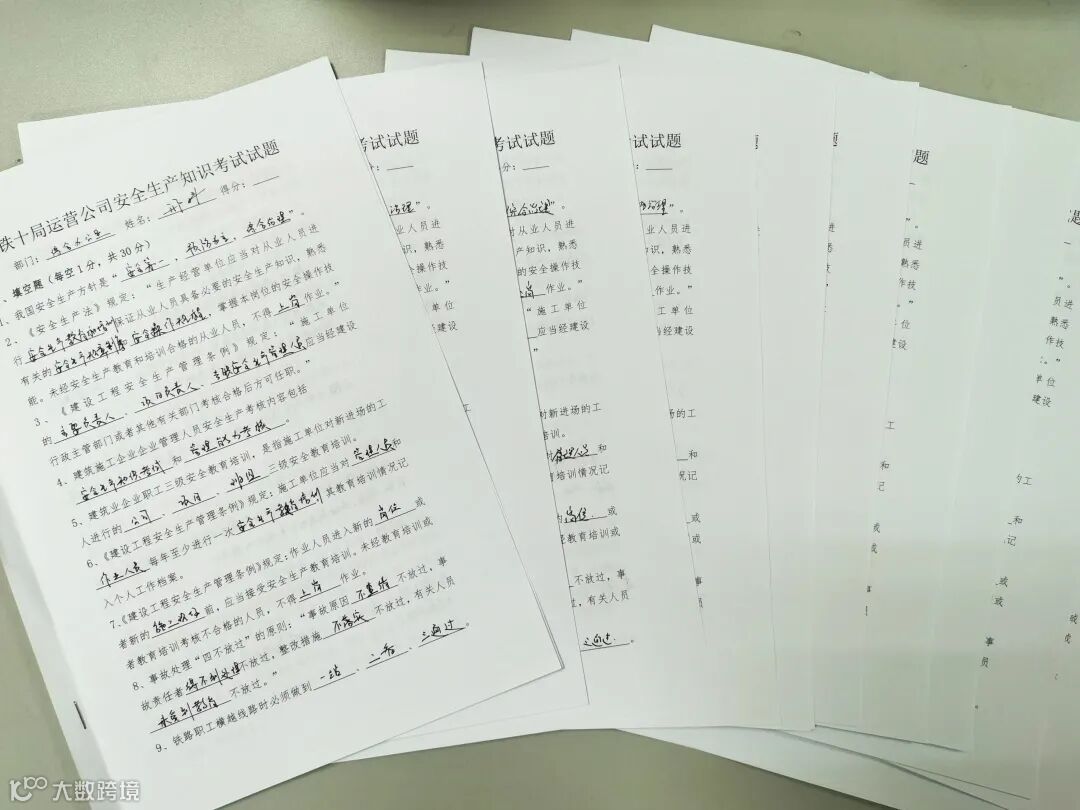 铁十局运营公司安全生产知识考试试题
部门：综合办公室 姓名： 得分：
、填空题（每空1分，共30分）
1、我国安全生产方针是“安全第一、预防为主、综合治理”。
2、《安全生产法》规定：“生产经营单位应当对从业人员进
行安全生产教育和培训保证从业人员具备必要的安全生产知识，熟悉
有关的安全生产规章制度 安全操作规程，掌握本岗位的安全操作技
能。未经安全生产教育和培训合格的从业人员，不得上岗作业。”
3、《建设工程安全生产管理条例》规定：“施工单位
的主要负责人、项目负责人、专职安全生产管理人员应当经建设
行政主管部门或者其他有关部门考核合格后方可任职。”
4、建筑施工企业企业管理人员安全生产考核内容包括
安全生产知识考试和管理能力考核。
5、建筑业企业职工三级安全教育培训，是指施工单位对新进场的工
人进行的公司、项目、班组三级安全教育培训。
6、《建设工程安全生产管理条例》规定：施工单位应当对管理人员和
作业人员每年至少进行一次安全生产教育培训其教育培训情况记
入个人工作档案。
7、《建设工程安全生产管理条例》规定：作业人员进入新的岗位或
者新的施工现场前，应当接受安全生产教育培训。未经教育培训或
者教育培训考核不合格的人员，不得上岗作业。
8、事故处理“四不放过”的原则：“事故原因不查清不放过，事
故责任者得不到处理不放过，整改措施不落实不放过，有关人员
未受到教育不放过。”
9、铁路职工横越线路时必须做到一站、二看、三通过。
考试试题
：
治理”。
业人员进
识，熟悉
全操作技
作业。”
施工单位
当经建设
”
考试试题
分：
综合治理”。
对从业人员进
产知识，熟悉
的安全操作技
岗作业。”
“施工单位
应当经建设
”
对新进场的工
培训。
管理人员和
教育培训情况记
的岗位或
经教育培训或
不放过，事
过，有关人员
三通过。
考试试题
：
治理”。
业人员进
识，熟悉
全操作技
作业。”
施工单位
当经建设
场的工
和
情况记
或
训或
，事
人员
题
题
”。
员进
熟悉
作技
”
单位
建设
工
和
记
或
或
事
员
题
”。
员进
熟悉
作技
。”
单位
建设
的工
和
记
或
或
事
员
大数跨境